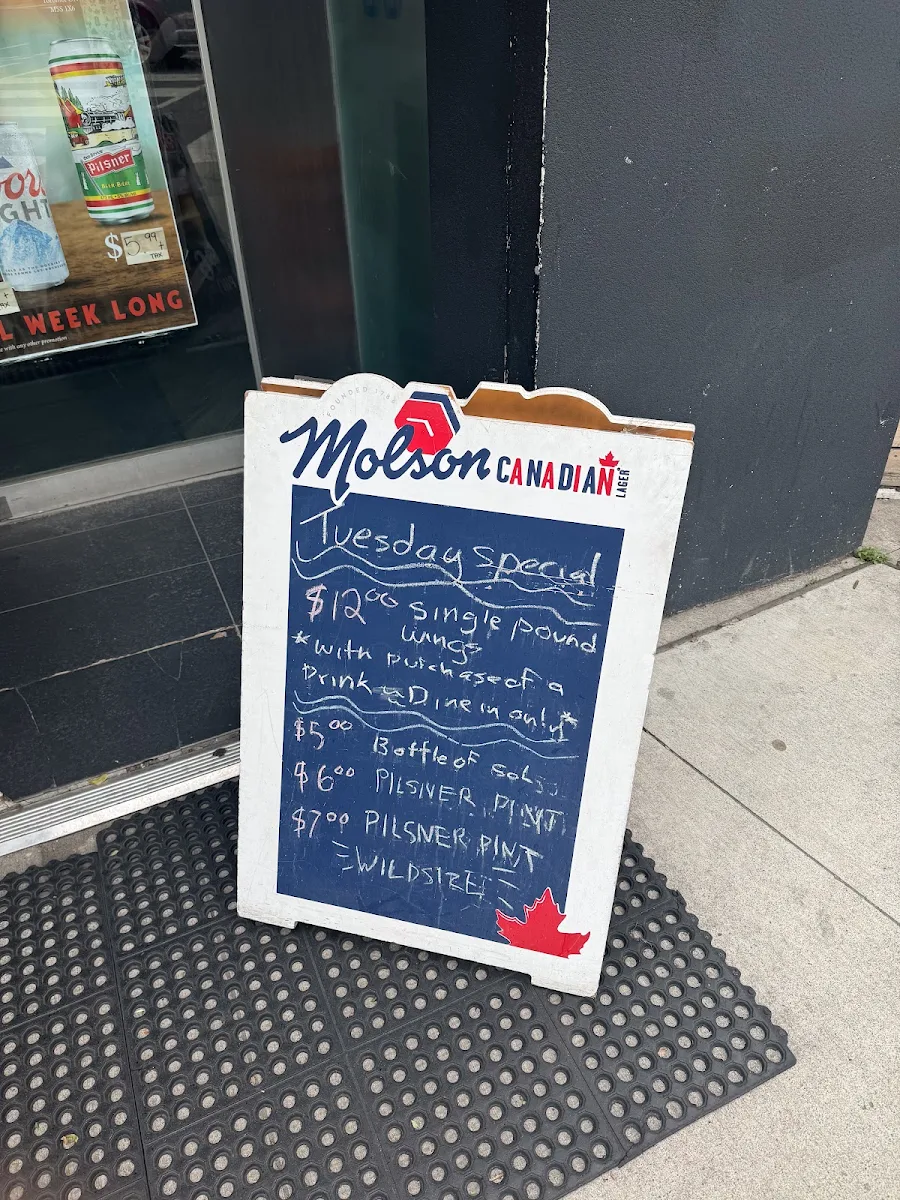 M5S 1X6
Pilsner
BEER BIERE
GHT
$5.99+
TAX
L WEEK LONG
with any other promotion
FOUNDED 1786
Molson CANADIAN LAGER
Tuesday special
$12.00 single pound
wings
*with purchase of a
Drink & Dine in only*
$5.00 Bottle of sol
$6.00 PILSNER PINT
$7.00 PILSNER PINT
WILDSIZE